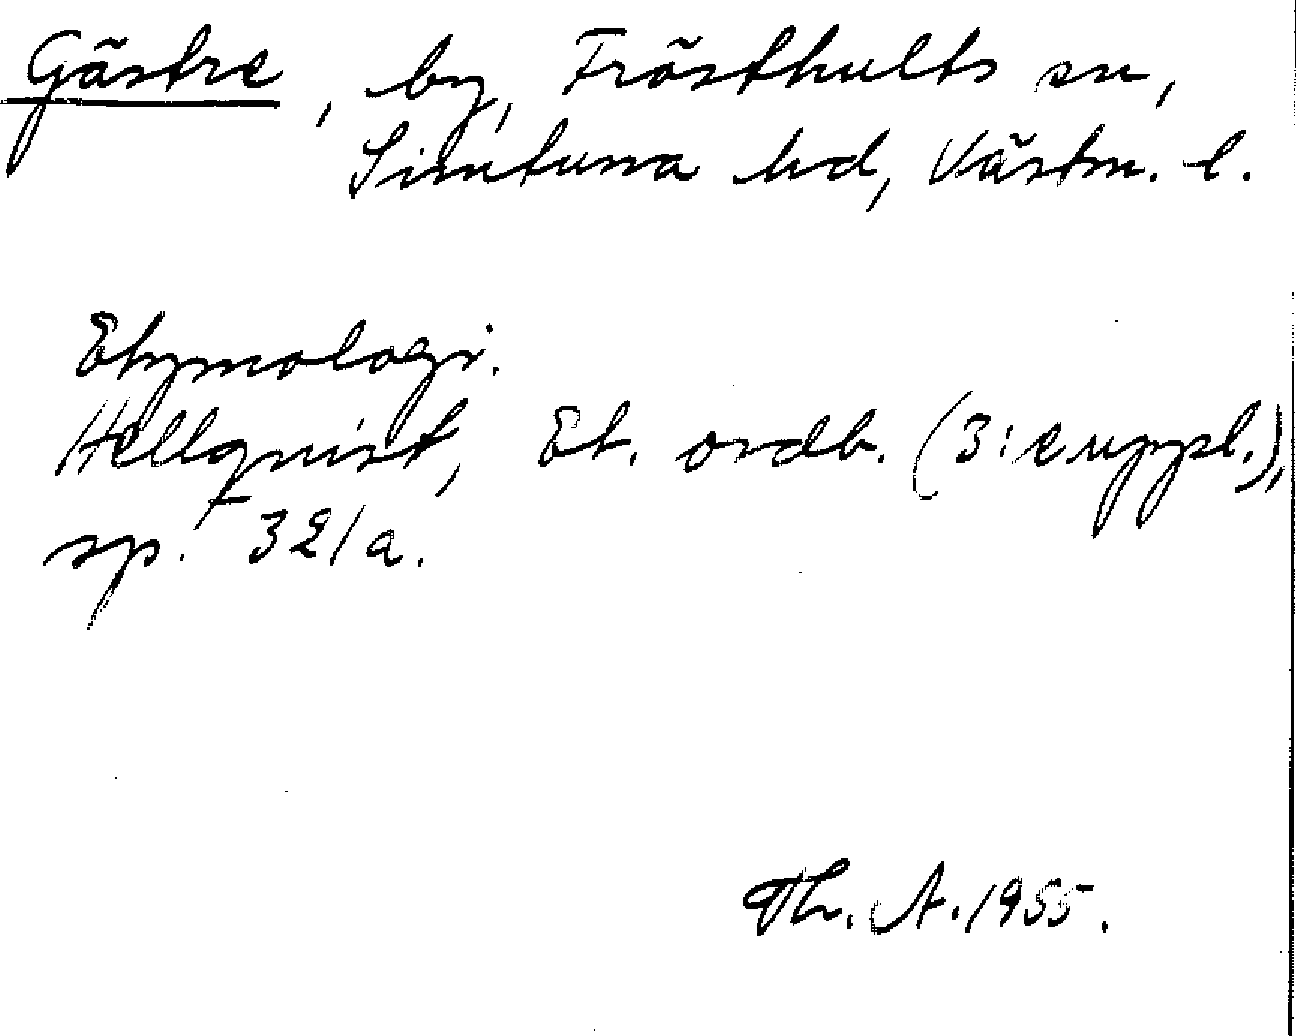 Gästre, by, Frösthults sn,
Simtuna hd, Västm. l.
Etymologi.
Hellquist, Et. ordb. (3:e uppl.),
sp. 321 a.
Th. A. 1955.